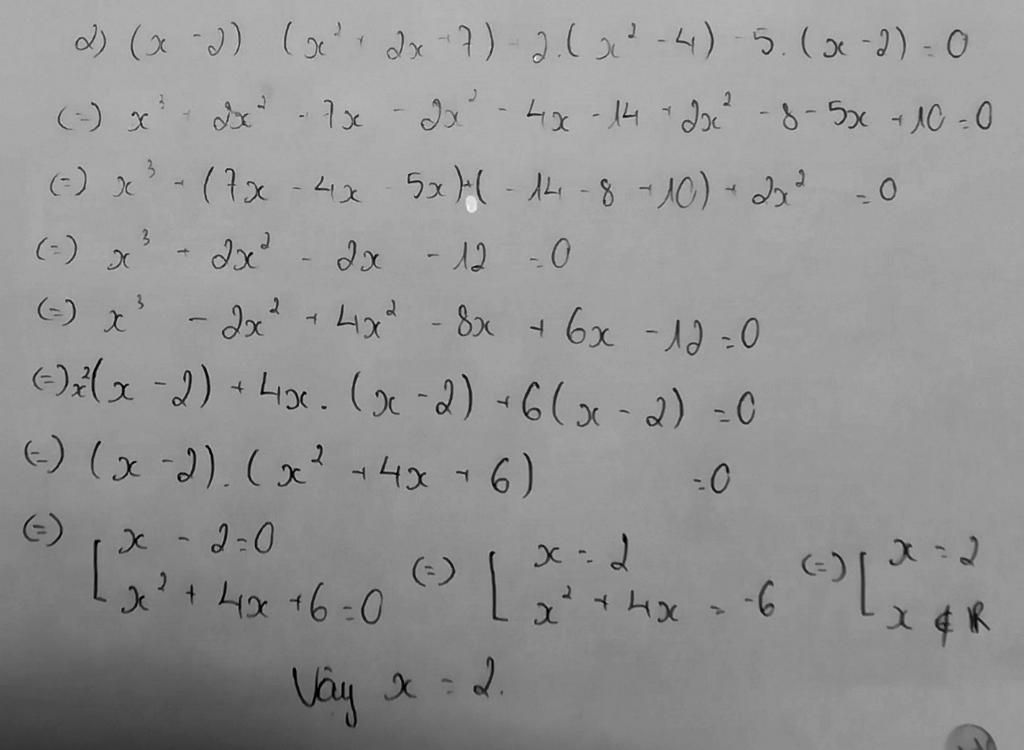 2) (x - 2) (x² + 2x + 7) + 2.(x² - 4) - 5.(x - 2) = 0
(=) x³ + 2x² + 7x - 2x² - 4x - 14 + 2x² - 8 - 5x + 10 = 0
(=) x³ + (7x - 4x - 5x) + (-14 - 8 + 10) + 2x² = 0
(=) x³ + 2x² - 2x - 12 = 0
(=) x³ - 2x² + 4x² - 8x + 6x - 12 = 0
(=) x²(x - 2) + 4x.(x - 2) + 6(x - 2) = 0
(=) (x - 2).(x² + 4x + 6) = 0
(=) [ x - 2 = 0 (=) [ x = 2 (=) [ x = 2
x² + 4x + 6 = 0 x² + 4x = -6 x ∉ ℝ
Vây x = 2.